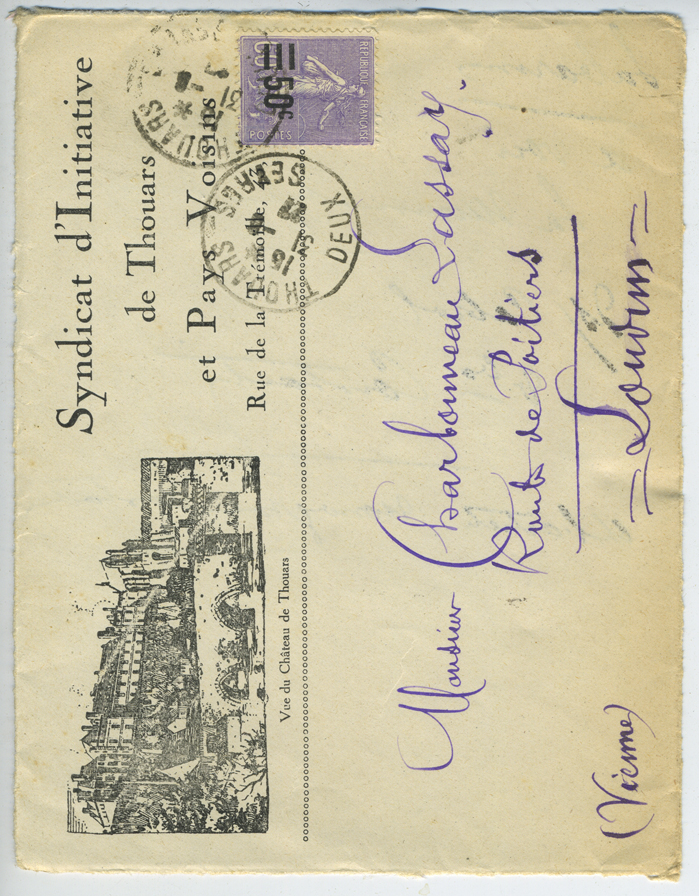 Syndicat d'Initiative
de Thouars
et Pays Voisins
Rue de la Trémoille,
Vue du Château de Thouars
REPUBLIQUE FRANÇAISE
50c
POSTES
THOUARS
31
THOUARS
DEUX SEVRES
15
31
Monsieur Charbonneau Lassay.
Route de Poitiers
Loudun
(Vienne)